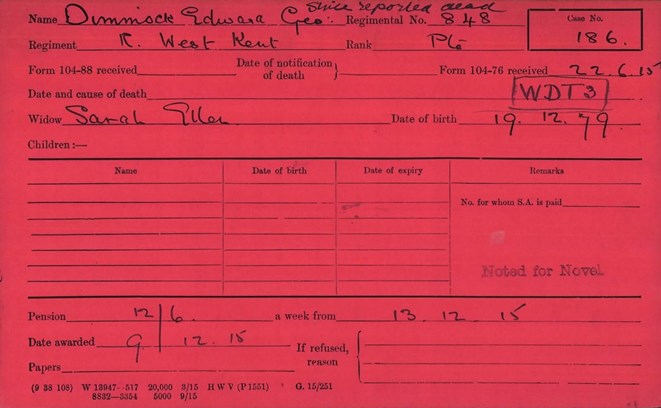 since reported dead
Name Dimmock Edward Geo: Regimental No. 848
Case No.
186.
Regiment R. West Kent Rank Pte
Form 104-88 received Date of notification of death Form 104-76 received 22.6.15
Date and cause of death WDT3
Widow Sarah Ellen Date of birth 19.12.79
Children :—
Name Date of birth Date of expiry Remarks
No. for whom S.A. is paid
Noted for Novel
Pension 12/6 a week from 13.12.15
Date awarded 9/12.15
If refused, reason
Papers
(9 38 108) W 13947—517 20,000 3/15 H W V (P 1551) G. 15/251
8832—3354 5000 9/15